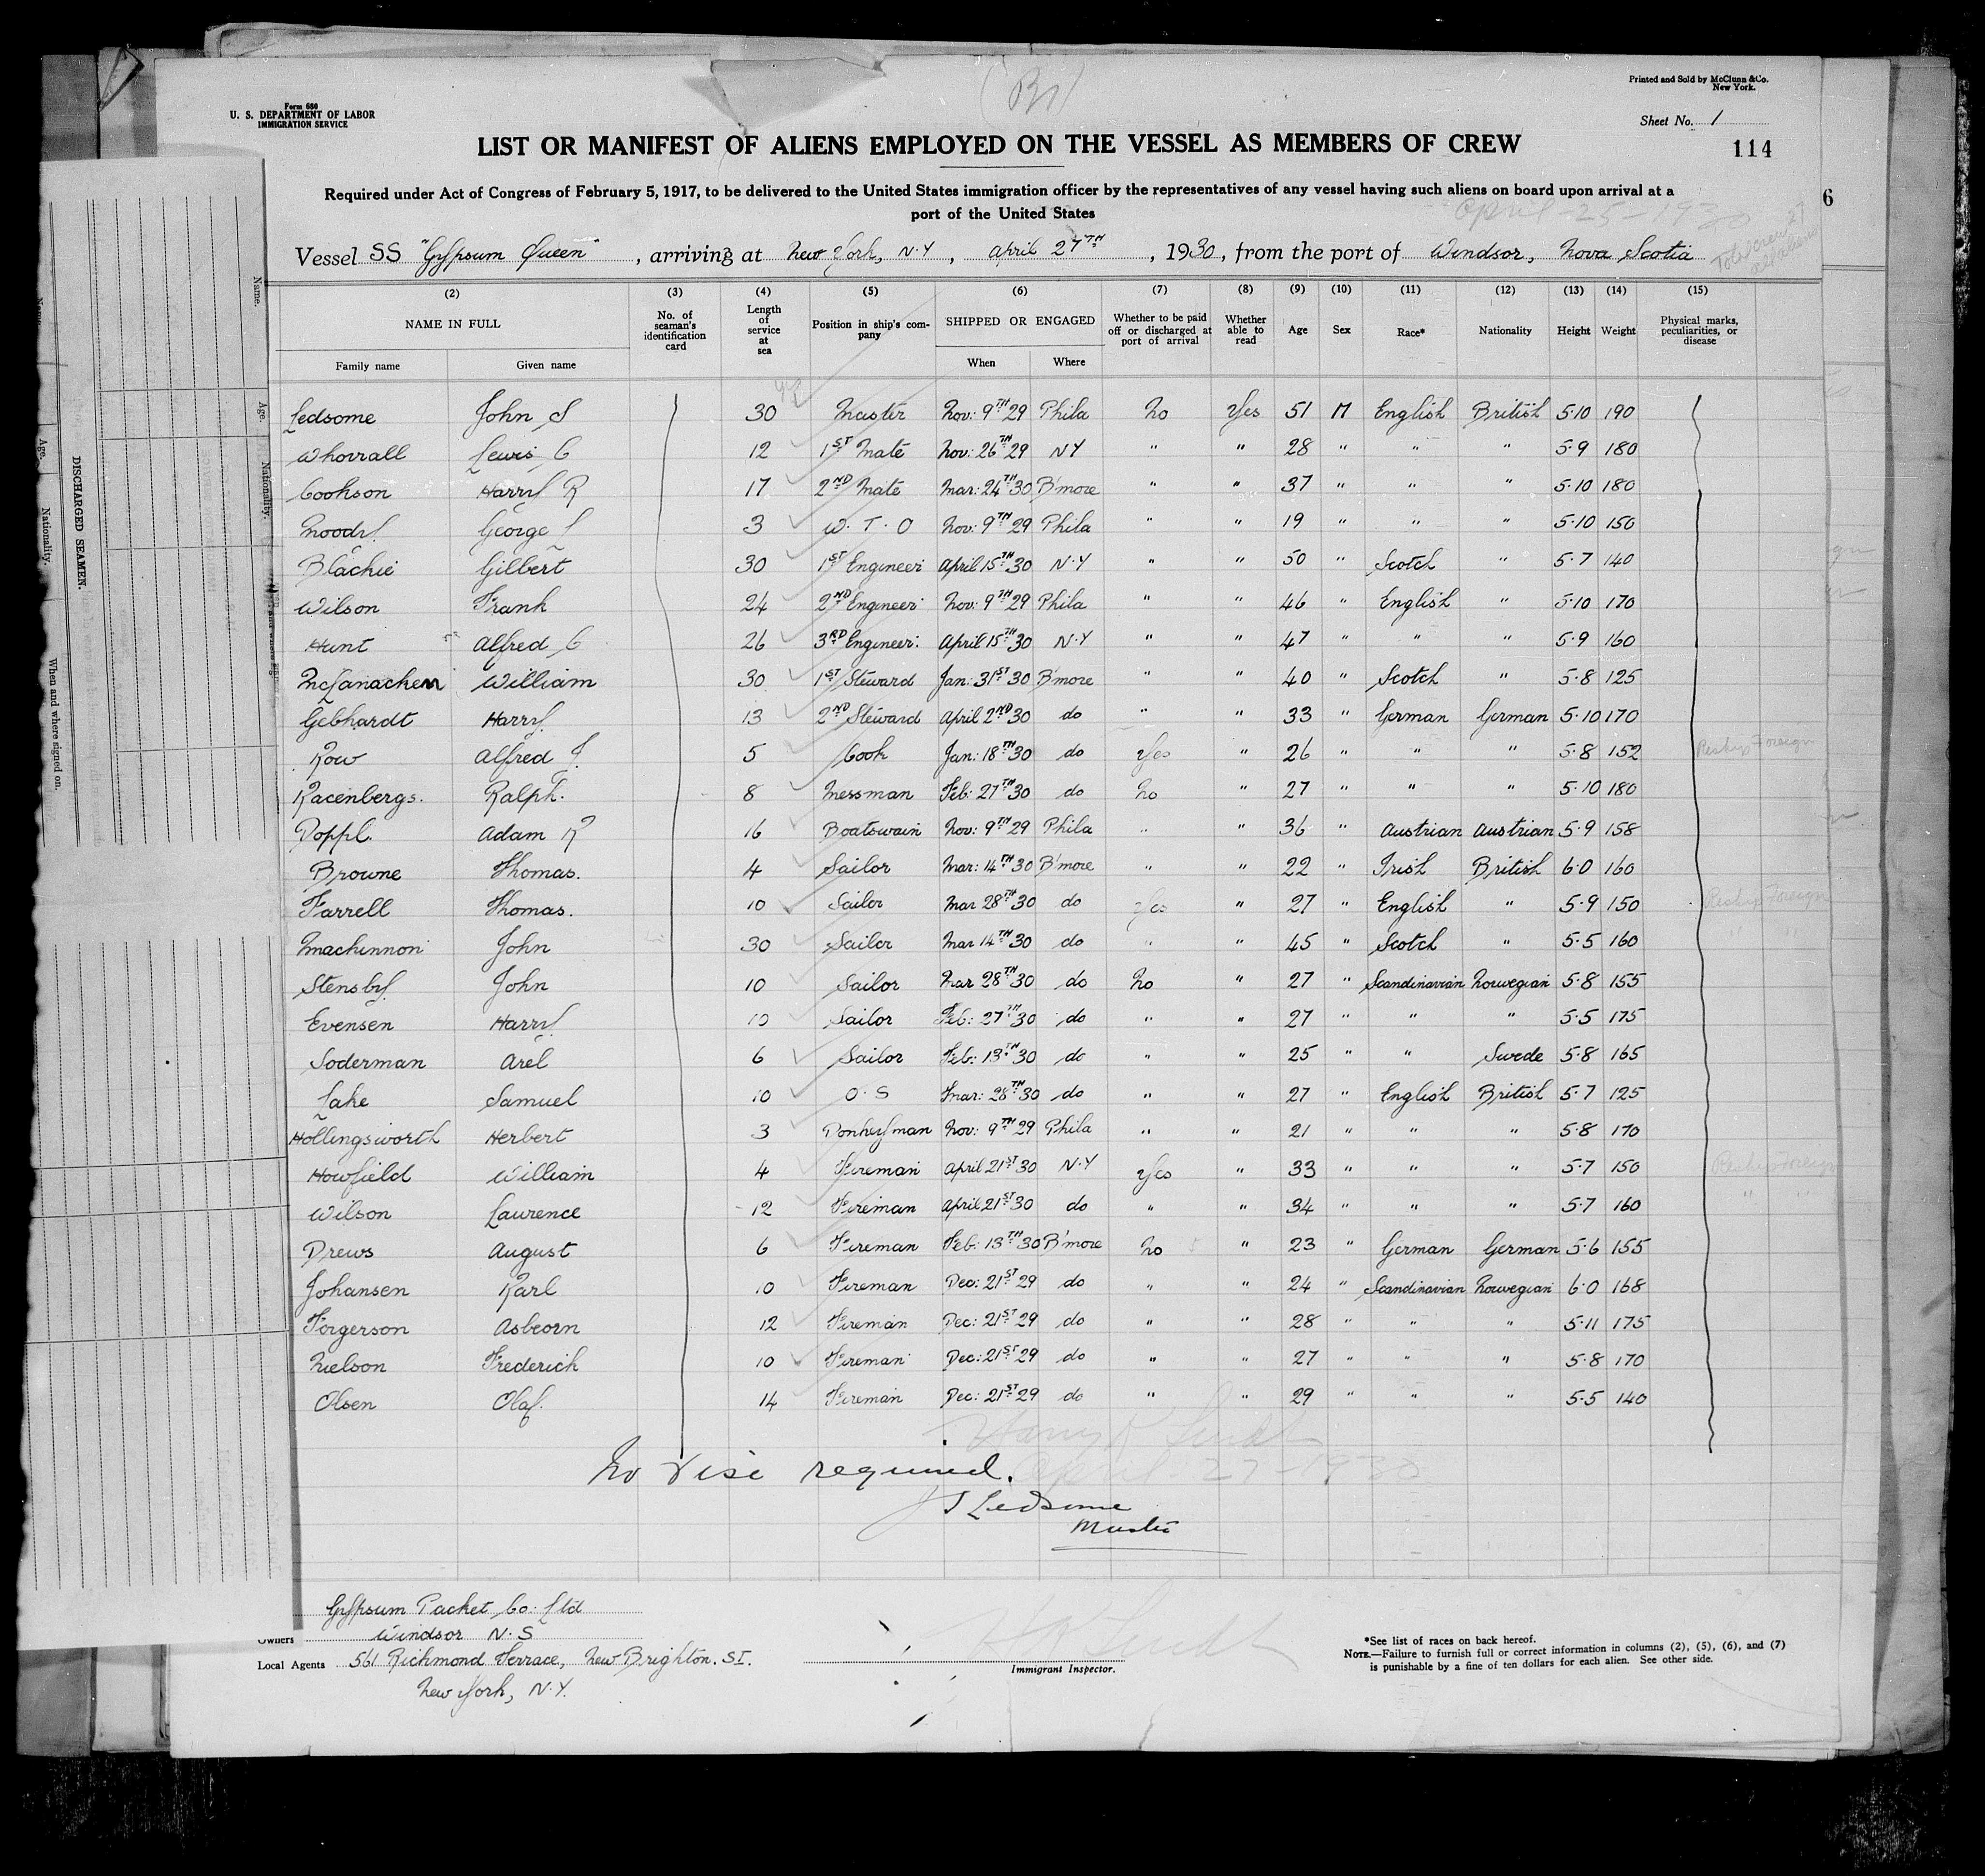 (B1)
Printed and Sold by McClunn & Co.
New York.
Form 680
U. S. DEPARTMENT OF LABOR
IMMIGRATION SERVICE
Sheet No. 1
LIST OR MANIFEST OF ALIENS EMPLOYED ON THE VESSEL AS MEMBERS OF CREW
114
Required under Act of Congress of February 5, 1917, to be delivered to the United States immigration officer by the representatives of any vessel having such aliens on board upon arrival at a
port of the United States
6
April-25-1930
Vessel SS "Gypsum Queen", arriving at New York, N.Y, April 27TH, 1930, from the port of Windsor, Nova Scotia
Total crew 27
all aliens
(2) (3) (4) (5) (6) (7) (8) (9) (10) (11) (12) (13) (14) (15)
NAME IN FULL No. of seaman's identification card Length of service at sea Position in ship's company SHIPPED OR ENGAGED Whether to be paid off or discharged at port of arrival Whether able to read Age Sex Race* Nationality Height Weight Physical marks, peculiarities, or disease
Family name Given name When Where
yrs
Ledsome John S 30 Master Nov: 9TH 29 Phila No Yes 51 M English British 5·10 190
Whorrall Lewis C 12 1ST Mate Nov: 26TH 29 NY " " 28 " " " 5·9 180
Cookson Harry R 17 2ND Mate Mar: 24TH 30 B'more " " 37 " " " 5·10 180
Moody George S 3 W.T.O Nov: 9TH 29 Phila " " 19 " " " 5·10 150
Blackie Gilbert 30 1ST Engineer April 15TH 30 N.Y " " 50 " Scotch " 5·7 140
Wilson Frank 24 2ND Engineer Nov: 9TH 29 Phila " " 46 " English " 5·10 170
Hunt Alfred C 26 3RD Engineer: April 15TH 30 N.Y " " 47 " " " 5·9 160
McLanachen William 30 1ST Steward Jan: 31ST 30 B'more " " 40 " Scotch " 5·8 125
Gebhardt Harry 13 2ND Steward April 2ND 30 do " " 33 " German German 5·10 170
Row Alfred J. 5 Cook Jan: 18TH 30 do Yes " 26 " " " 5·8 152 Reship Foreign
Racenbergs. Ralph. 8 Messman Feb: 27TH 30 do No " 27 " " " 5·10 180
Poppl Adam R 16 Boatswain Nov: 9TH 29 Phila " " 36 " Austrian Austrian 5·9 158
Browne Thomas. 4 Sailor Mar: 14TH 30 B'more " " 22 " Irish British 6·0 160
Farrell Thomas. 10 Sailor Mar 28TH 30 do Yes " 27 " English " 5·9 150 Reship Foreign
Mackinnon John 30 Sailor Mar 14TH 30 do " " 45 " Scotch " 5·5 160 " "
Stensby John 10 Sailor Mar 28TH 30 do No " 27 " Scandinavian Norwegian 5·8 155
Evensen Harry 10 Sailor Feb: 27TH 30 do " " 27 " " " 5·5 175
Soderman Arel 6 Sailor Feb: 13TH 30 do " " 25 " " Swede 5·8 165
Lake Samuel 10 O.S Mar: 28TH 30 do " " 27 " English British 5·7 125
Hollingsworth Herbert 3 Donkeyman Nov: 9TH 29 Phila " " 21 " " " 5·8 170
Howfield William 4 Fireman April 21ST 30 N.Y Yes " 33 " " " 5·7 150 Reship Foreign
Wilson Laurence 12 Fireman April 21ST 30 do " " 34 " " " 5·7 160 " "
Drews August 6 Fireman Feb: 13TH 30 B'more No " 23 " German German 5·6 155
Johansen Karl 10 Fireman Dec: 21ST 29 do " " 24 " Scandinavian Norwegian 6·0 168
Torgerson Asbeorn 12 Fireman Dec: 21ST 29 do " " 28 " " " 5·11 175
Nielson Frederich 10 Fireman Dec: 21ST 29 do " " 27 " " " 5·8 170
Olsen Olaf. 14 Fireman Dec: 21ST 29 do " " 29 " " " 5·5 140
No Visé required.
April 27-1930
J S Ledsome
Master
Gypsum Packet Co. Ltd
Owners Windsor N.S
Local Agents 561 Richmond Terrace, New Brighton. S.I.
New York, N.Y.
Immigrant Inspector.
*See list of races on back hereof.
NOTE.—Failure to furnish full or correct information in columns (2), (5), (6), and (7)
is punishable by a fine of ten dollars for each alien. See other side.
DISCHARGED SEAMEN.
Name.
Age.
Nationality.
When and where signed on.
Name.
Age.
Nationality.